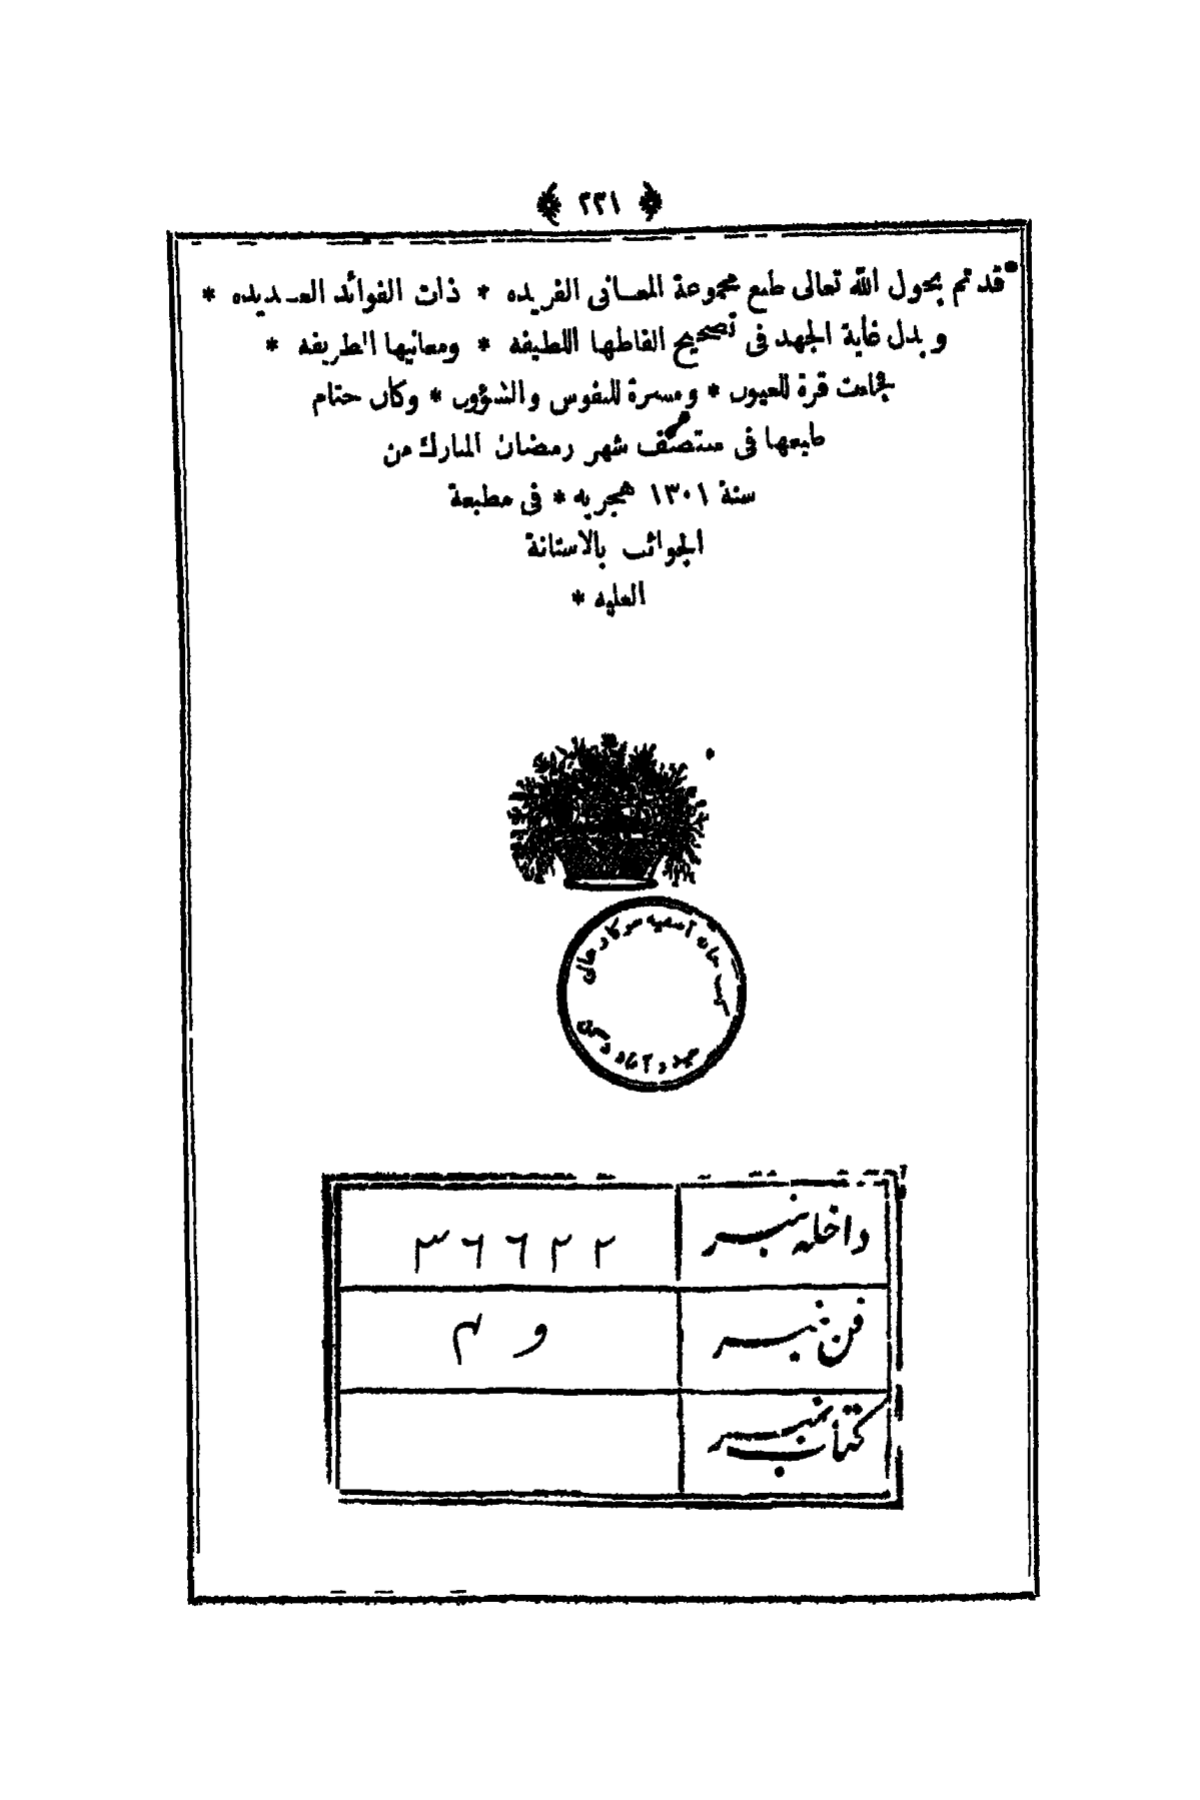 ﴿ ٢٢١ ﴾
قد تم بحول الله تعالى طبع مجموعة المعانى الفريده * ذات الفوائد العديده *
وبذل غاية الجهد فى تصحيح الفاظها اللطيفة * ومعانيها الظريفة *
فجاءت قرة للعيون * ومسرة للنفوس والشؤون * وكان ختام
طبعها فى منتصف شهر رمضان المبارك من
سنة ١٣٠١ هجريه * فى مطبعة
الجوائب بالاستانة
العليه *
كتب خانه آصفيه سركار عالى
حيدرآباد دكن
داخله نمبر ٣٦٦٢٢
فن نمبر
كتاب نمبر